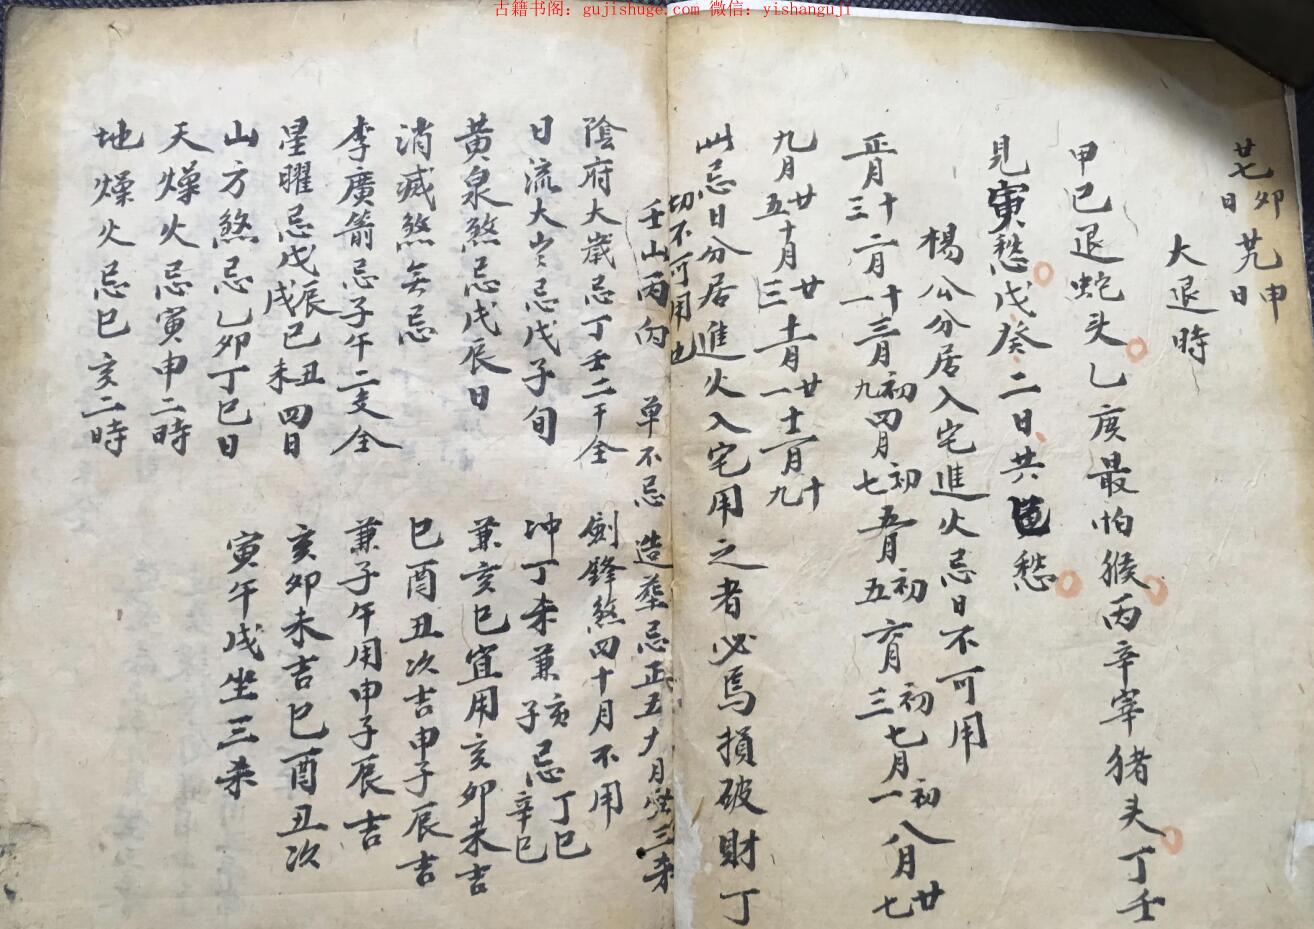 古籍书阁：gujishuge.com 微信：yishanguji
廿七日卯 廿九日申
大退時
甲巳退蛇头乙庚最怕猴丙辛宰猪头丁壬
見寅愁戊癸二日共愁
楊公分居入宅進火忌日不可用
正月十三二月十一三月初九四月初七五月初五六月初三七月初一八月廿七
九月廿五十月廿三十一月廿一十二月十九
此忌日分居進火入宅用之者必焉損破財丁
切不可用也
壬山丙向 单不忌 造塟忌正五九月 三杀
陰府大歲忌丁壬二干全 劍鋒煞四十月不用
日流大忌戊子旬 冲丁杀兼亥子忌丁巳辛巳
黄泉煞忌戊辰日 兼亥巳宜用亥卯未吉
消滅煞矣忌 巳酉丑次吉申子辰吉
李廣箭忌子午二支全 兼子午用申子辰吉
星曜忌戊辰戊戌己丑己未四日 亥卯未吉巳酉丑次
山方煞忌乙卯丁巳日 寅午戌坐三杀
天燥火忌寅申二時
地燥火忌巳亥二時